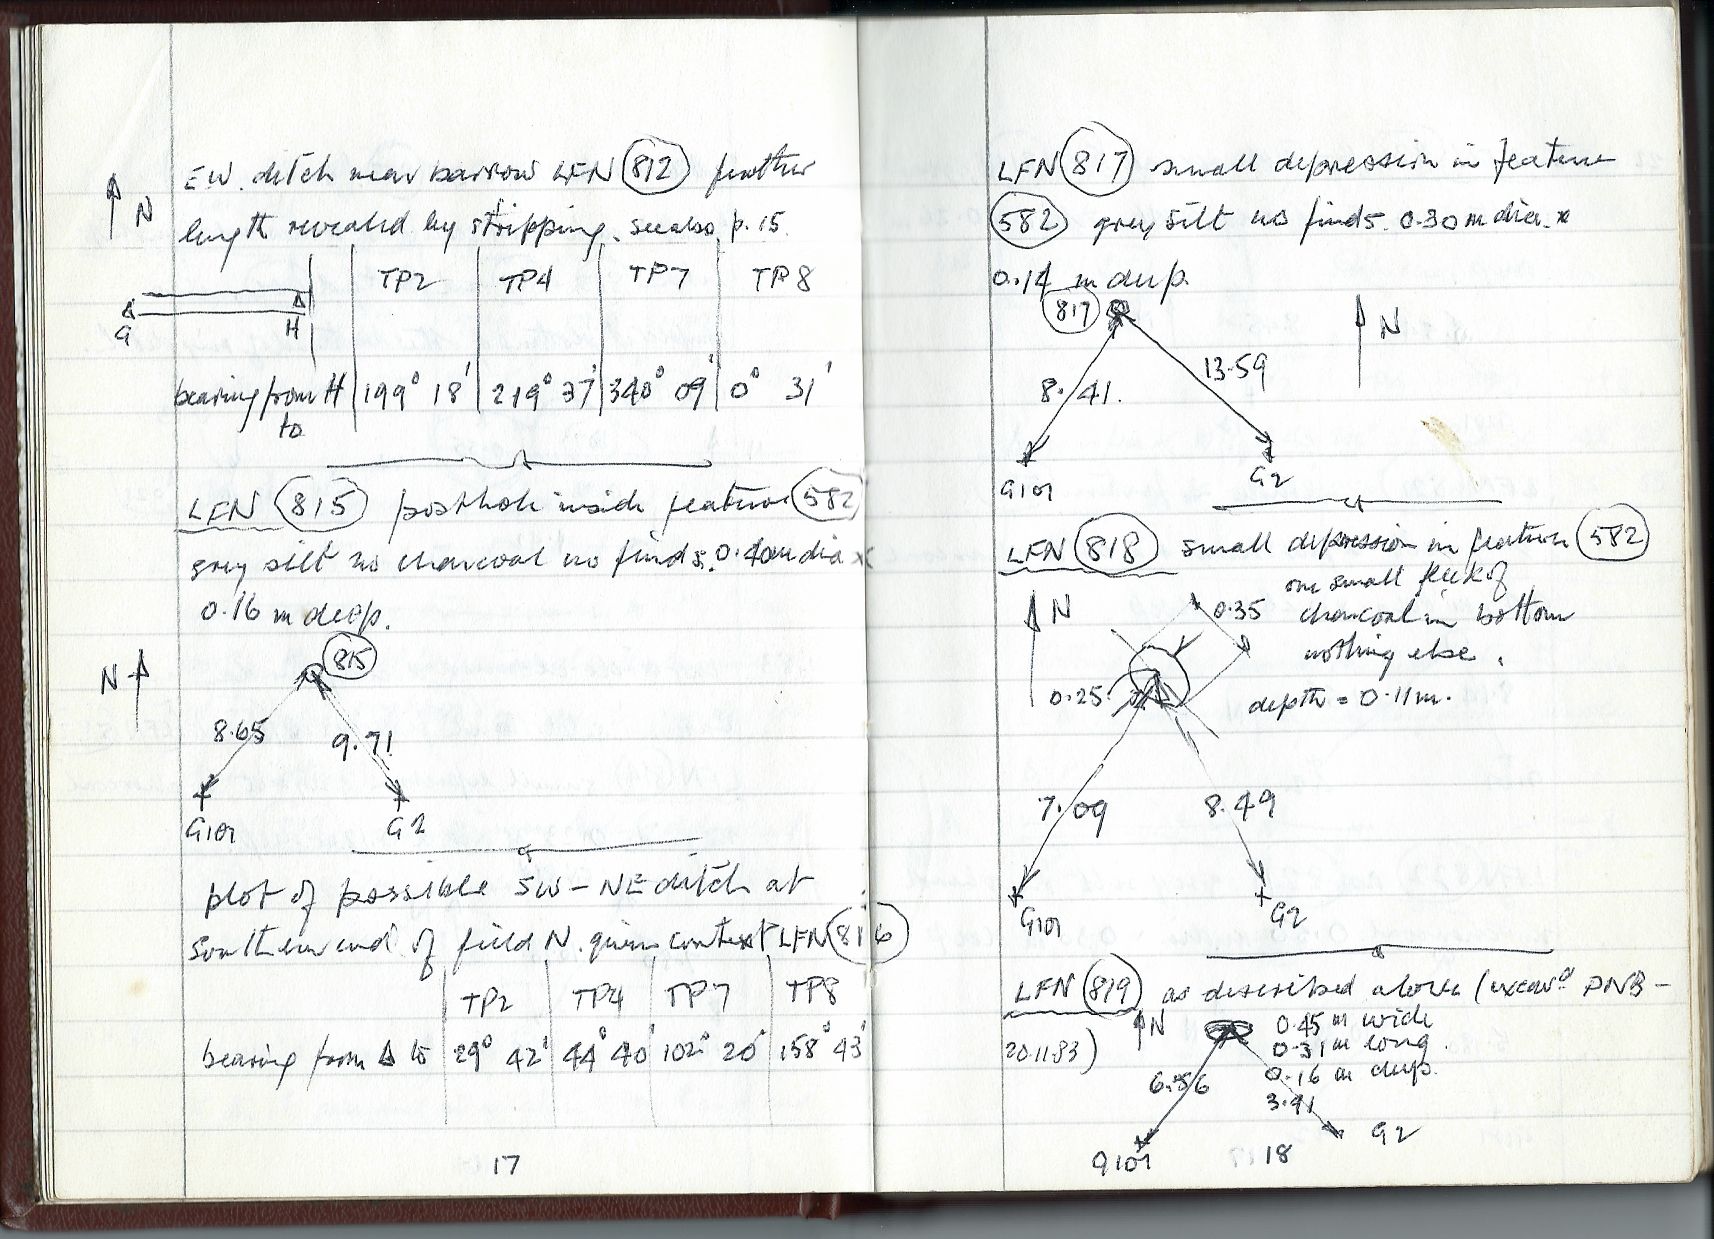 E.W. ditch near barrow LFN 812 further
N
length revealed by stripping. see also p. 15.
TP2 TP4 TP7 TP8
G H
bearing from H 199° 18' 219° 37' 340° 09' 0° 31'
to
LFN 815 posthole inside feature 582
grey silt no charcoal no finds. 0.40m dia x
0.16 m deep.
815
N
8.65 9.71
G101 G2
plot of possible SW-NE ditch at
Southern end of field N. given context LFN 816
TP2 TP4 TP7 TP8
bearing from Δ to 29° 42' 44° 40' 102° 20' 158° 43'
17
LFN 817 small depression in feature
582 grey silt no finds. 0.30 m dia. x
0.14 m deep.
817
N
8.41. 13.59
G101 G2
LFN 818 small depression in feature 582
one small fleck of
N 0.35 charcoal in bottom
nothing else.
0.25 depth = 0.11m.
7.09 8.49
G101 G2
LFN 819 as described above (excavd PNB -
N 0.45 m wide
20.11.83) 0.31 m long.
0.16 m deep.
6.56
3.91
G101 G2
18